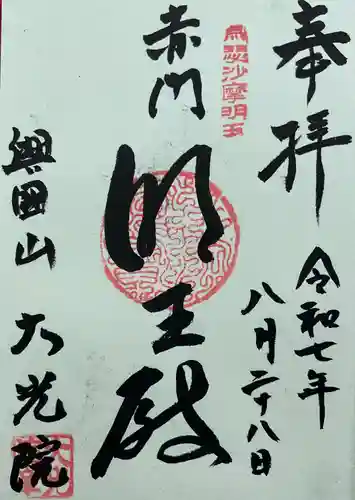 奉拝
令和七年
八月二十八日
烏瑟沙摩明王
赤門
明王殿
興国山
大光院